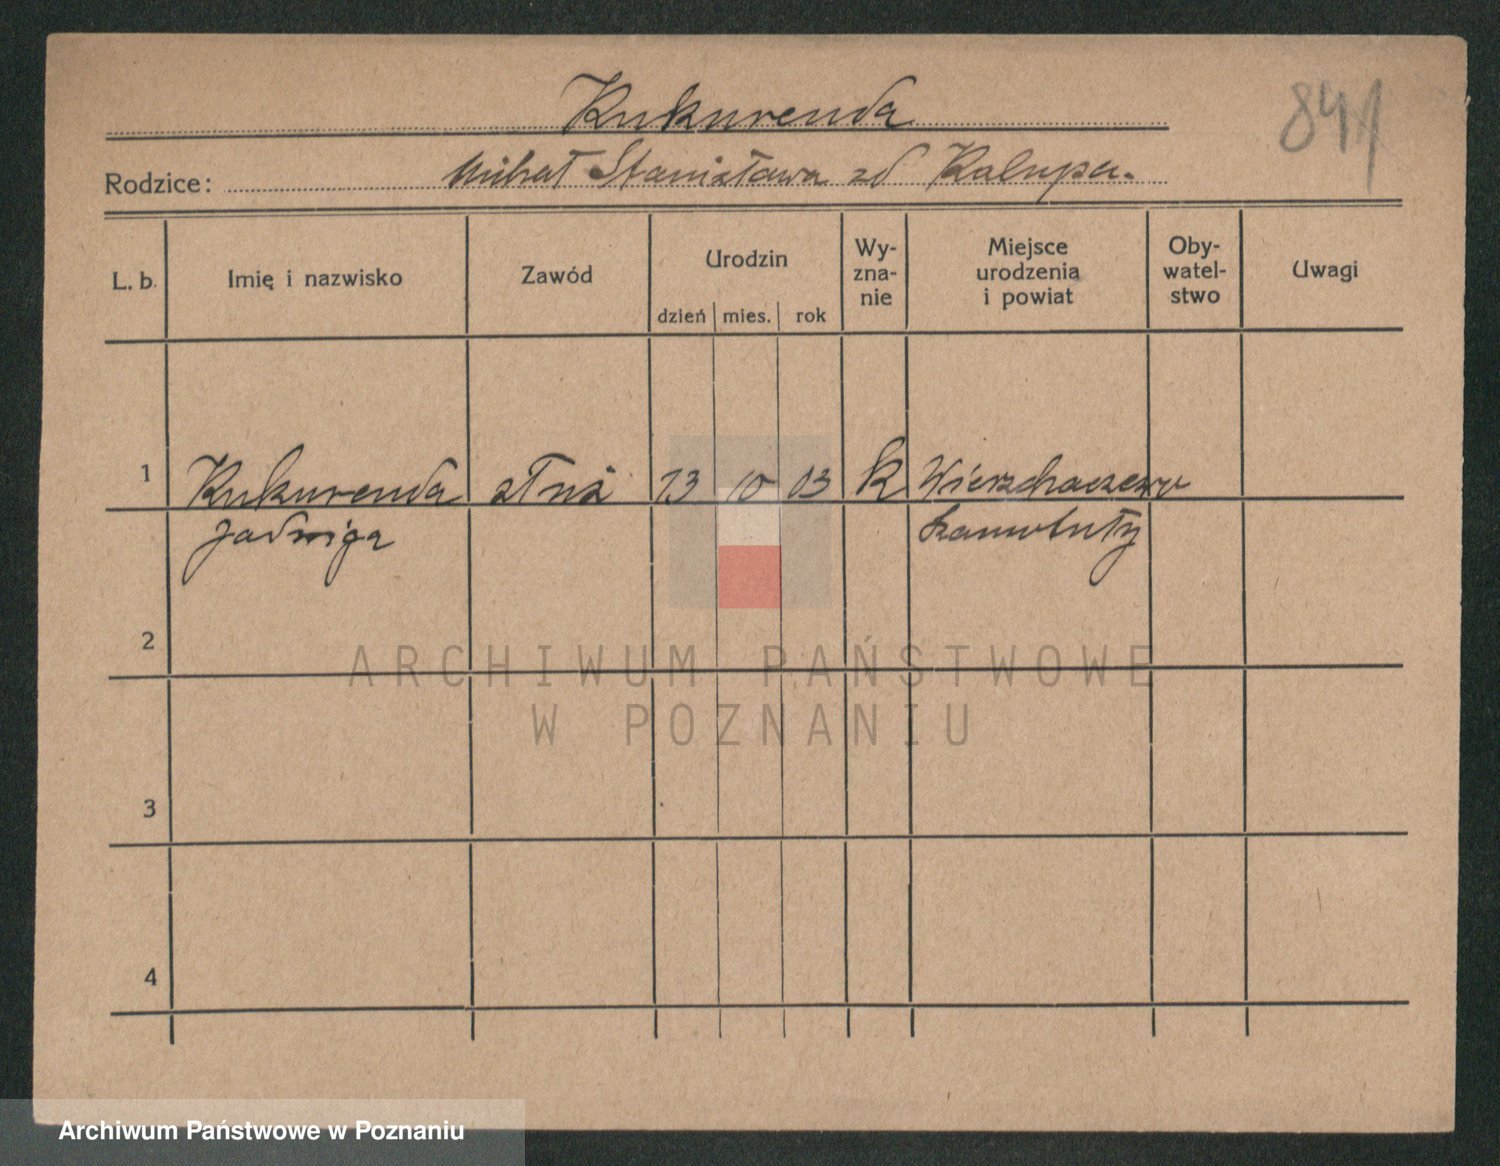 Kukurenda
841
Rodzice: Michał Stanisława zd Kalupa.
L. b. Imię i nazwisko Zawód Urodzin dzień mies. rok Wy-
zna-
nie Miejsce
urodzenia
i powiat Oby-
watel-
stwo Uwagi
1 Kukurenda 13 10 03 k Wierzchaczewo
Jadwiga Szamotuły
2
3
4
ARCHIWUM PAŃSTWOWE
W POZNANIU
Archiwum Państwowe w Poznaniu